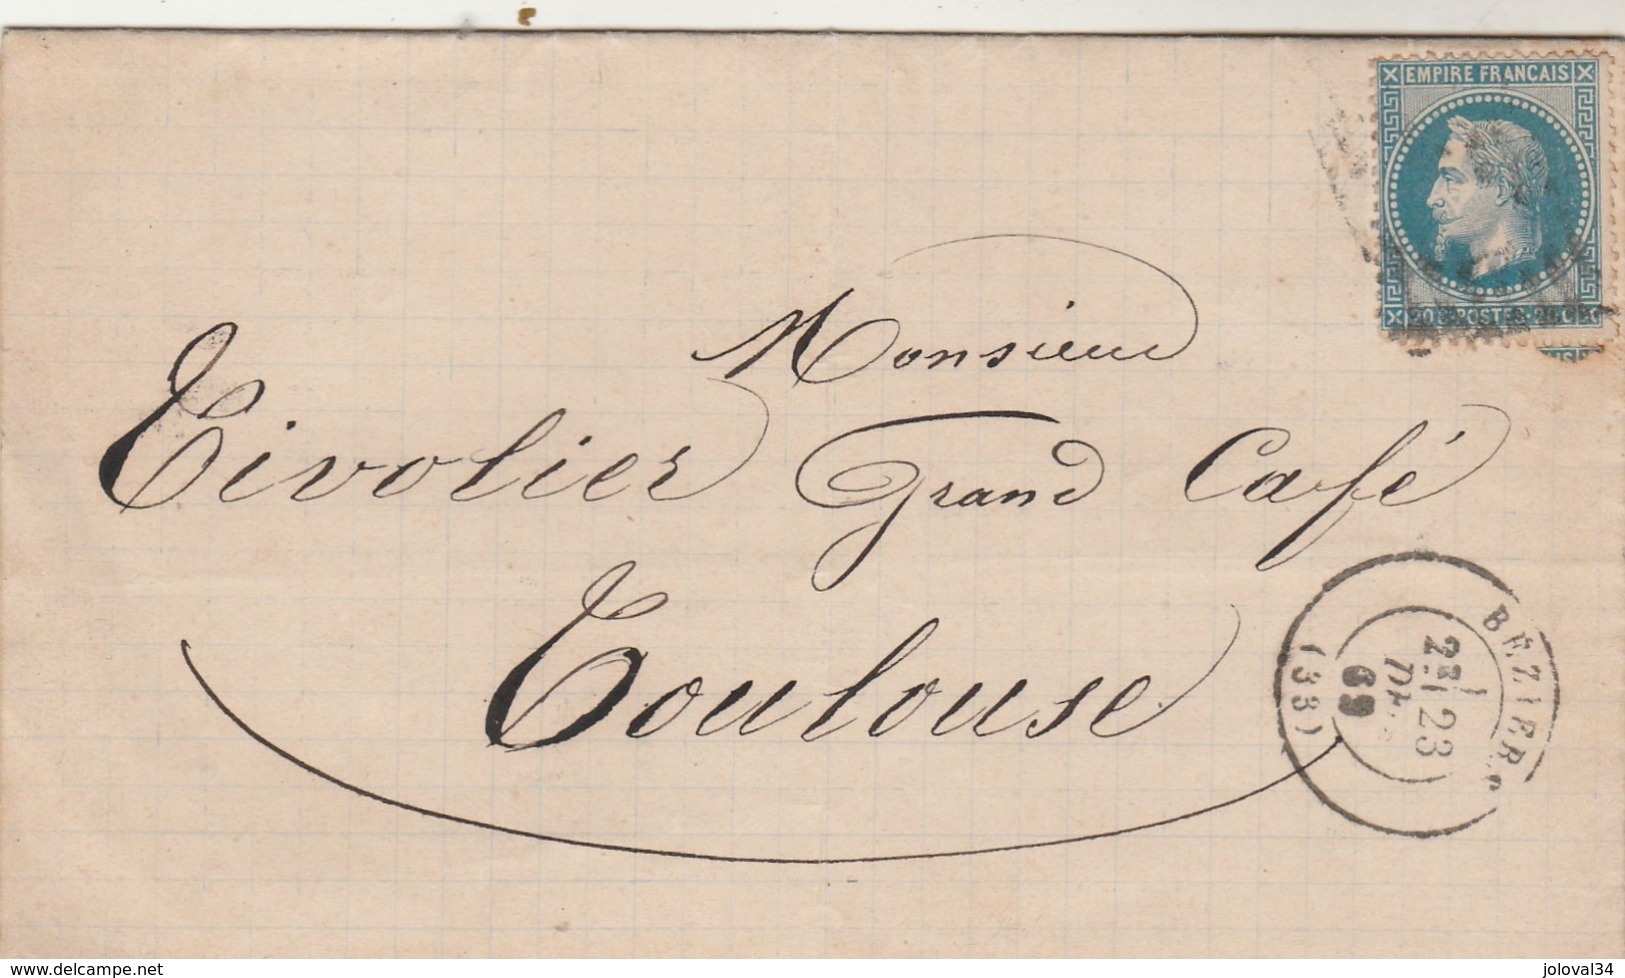 EMPIRE FRANCAIS
20 C POSTES 20 C
Monsieur
Tivolier Grand Café
Toulouse
BÉZIERS
23
69
(33)
www.delcampe.net
joloval34